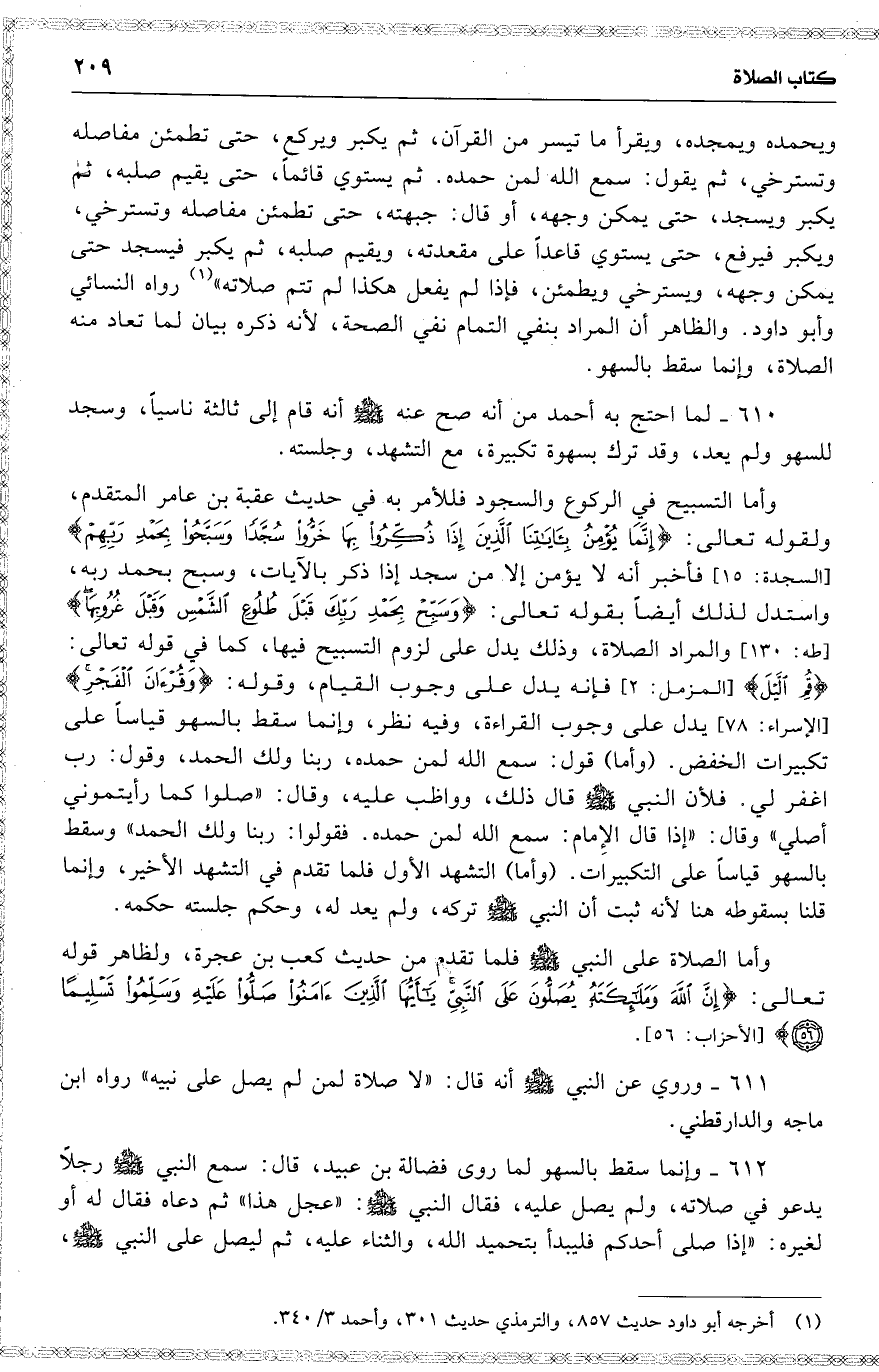 كتاب الصلاة ٢٠٩
ويحمده ويمجده، ويقرأ ما تيسر من القرآن، ثم يكبر ويركع، حتى تطمئن مفاصله
وتسترخي، ثم يقول: سمع الله لمن حمده. ثم يستوي قائماً، حتى يقيم صلبه، ثم
يكبر ويسجد، حتى يمكن وجهه، أو قال: جبهته، حتى تطمئن مفاصله وتسترخي،
ويكبر فيرفع، حتى يستوي قاعداً على مقعدته، ويقيم صلبه، ثم يكبر فيسجد حتى
يمكن وجهه، ويسترخي ويطمئن، فإذا لم يفعل هكذا لم تتم صلاته»(١) رواه النسائي
وأبو داود. والظاهر أن المراد بنفي التمام نفي الصحة، لأنه ذكره بيان لما تعاد منه
الصلاة، وإنما سقط بالسهو.
٦١٠ ـ لما احتج به أحمد من أنه صح عنه ﷺ أنه قام إلى ثالثة ناسياً، وسجد
للسهو ولم يعد، وقد ترك بسهوة تكبيرة، مع التشهد، وجلسته.
وأما التسبيح في الركوع والسجود فللأمر به في حديث عقبة بن عامر المتقدم،
ولقوله تعالى: ﴿إِنَّمَا يُؤْمِنُ بِـَٔايَـٰتِنَا ٱلَّذِينَ إِذَا ذُكِّرُوا۟ بِهَا خَرُّوا۟ سُجَّدًا وَسَبَّحُوا۟ بِحَمْدِ رَبِّهِمْ﴾
[السجدة: ١٥] فأخبر أنه لا يؤمن إلا من سجد إذا ذكر بالآيات، وسبح بحمد ربه،
واستدل لذلك أيضاً بقوله تعالى: ﴿وَسَبِّحْ بِحَمْدِ رَبِّكَ قَبْلَ طُلُوعِ ٱلشَّمْسِ وَقَبْلَ غُرُوبِهَا ۖ﴾
[طه: ١٣٠] والمراد الصلاة، وذلك يدل على لزوم التسبيح فيها، كما في قوله تعالى:
﴿قُمِ ٱلَّيْلَ﴾ [المزمل: ٢] فإنه يدل على وجوب القيام، وقوله: ﴿وَقُرْءَانَ ٱلْفَجْرِ ۖ﴾
[الإسراء: ٧٨] يدل على وجوب القراءة، وفيه نظر، وإنما سقط بالسهو قياساً على
تكبيرات الخفض. (وأما) قول: سمع الله لمن حمده، ربنا ولك الحمد، وقول: رب
اغفر لي. فلأن النبي ﷺ قال ذلك، وواظب عليه، وقال: «صلوا كما رأيتموني
أصلي» وقال: «إذا قال الإمام: سمع الله لمن حمده. فقولوا: ربنا ولك الحمد» وسقط
بالسهو قياساً على التكبيرات. (وأما) التشهد الأول فلما تقدم في التشهد الأخير، وإنما
قلنا بسقوطه هنا لأنه ثبت أن النبي ﷺ تركه، ولم يعد له، وحكم جلسته حكمه.
وأما الصلاة على النبي ﷺ فلما تقدم من حديث كعب بن عجرة، ولظاهر قوله
تعالى: ﴿إِنَّ ٱللَّهَ وَمَلَـٰٓئِكَتَهُۥ يُصَلُّونَ عَلَى ٱلنَّبِىِّ ۚ يَـٰٓأَيُّهَا ٱلَّذِينَ ءَامَنُوا۟ صَلُّوا۟ عَلَيْهِ وَسَلِّمُوا۟ تَسْلِيمًا
٥٦﴾ [الأحزاب: ٥٦].
٦١١ ـ وروي عن النبي ﷺ أنه قال: «لا صلاة لمن لم يصل على نبيه» رواه ابن
ماجه والدارقطني.
٦١٢ ـ وإنما سقط بالسهو لما روى فضالة بن عبيد، قال: سمع النبي ﷺ رجلاً
يدعو في صلاته، ولم يصل عليه، فقال النبي ﷺ: «عجل هذا» ثم دعاه فقال له أو
لغيره: «إذا صلى أحدكم فليبدأ بتحميد الله، والثناء عليه، ثم ليصل على النبي ﷺ،
(١) أخرجه أبو داود حديث ٨٥٧، والترمذي حديث ٣٠١، وأحمد ٣/ ٣٤٠.